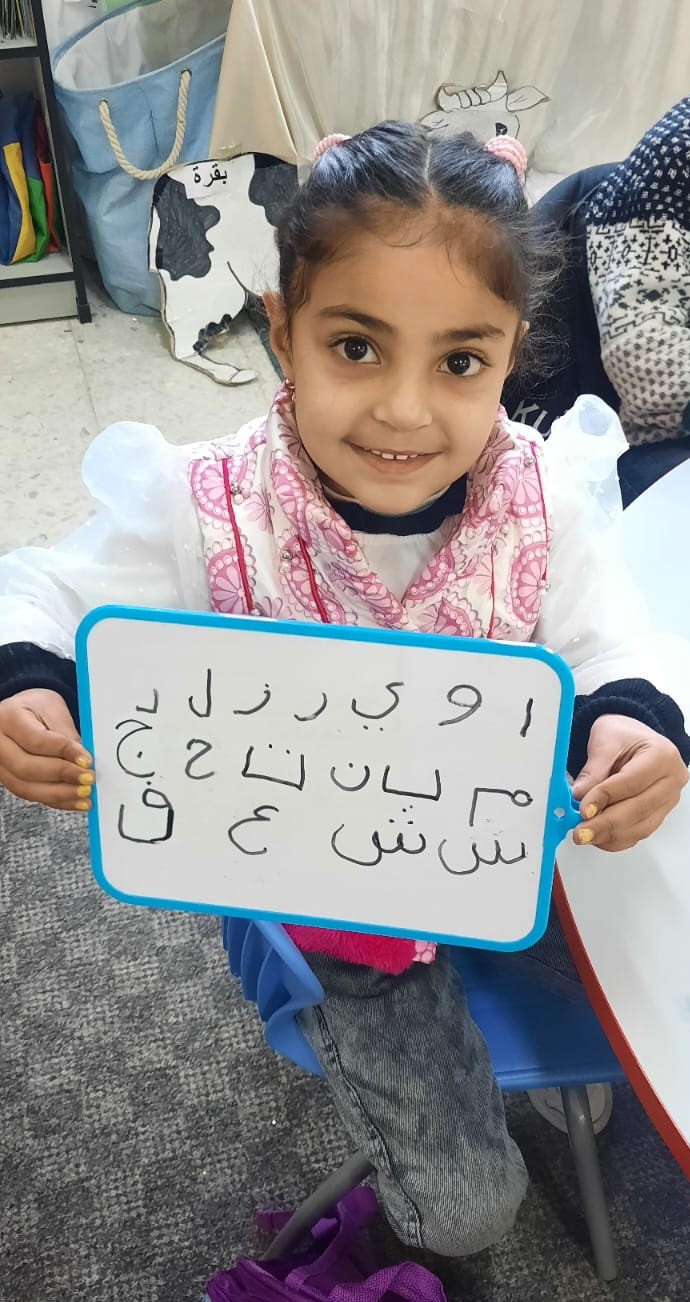 بقرة
ا و ي ر ز ل د
م ب ن ت ح ج
س ش ع ف